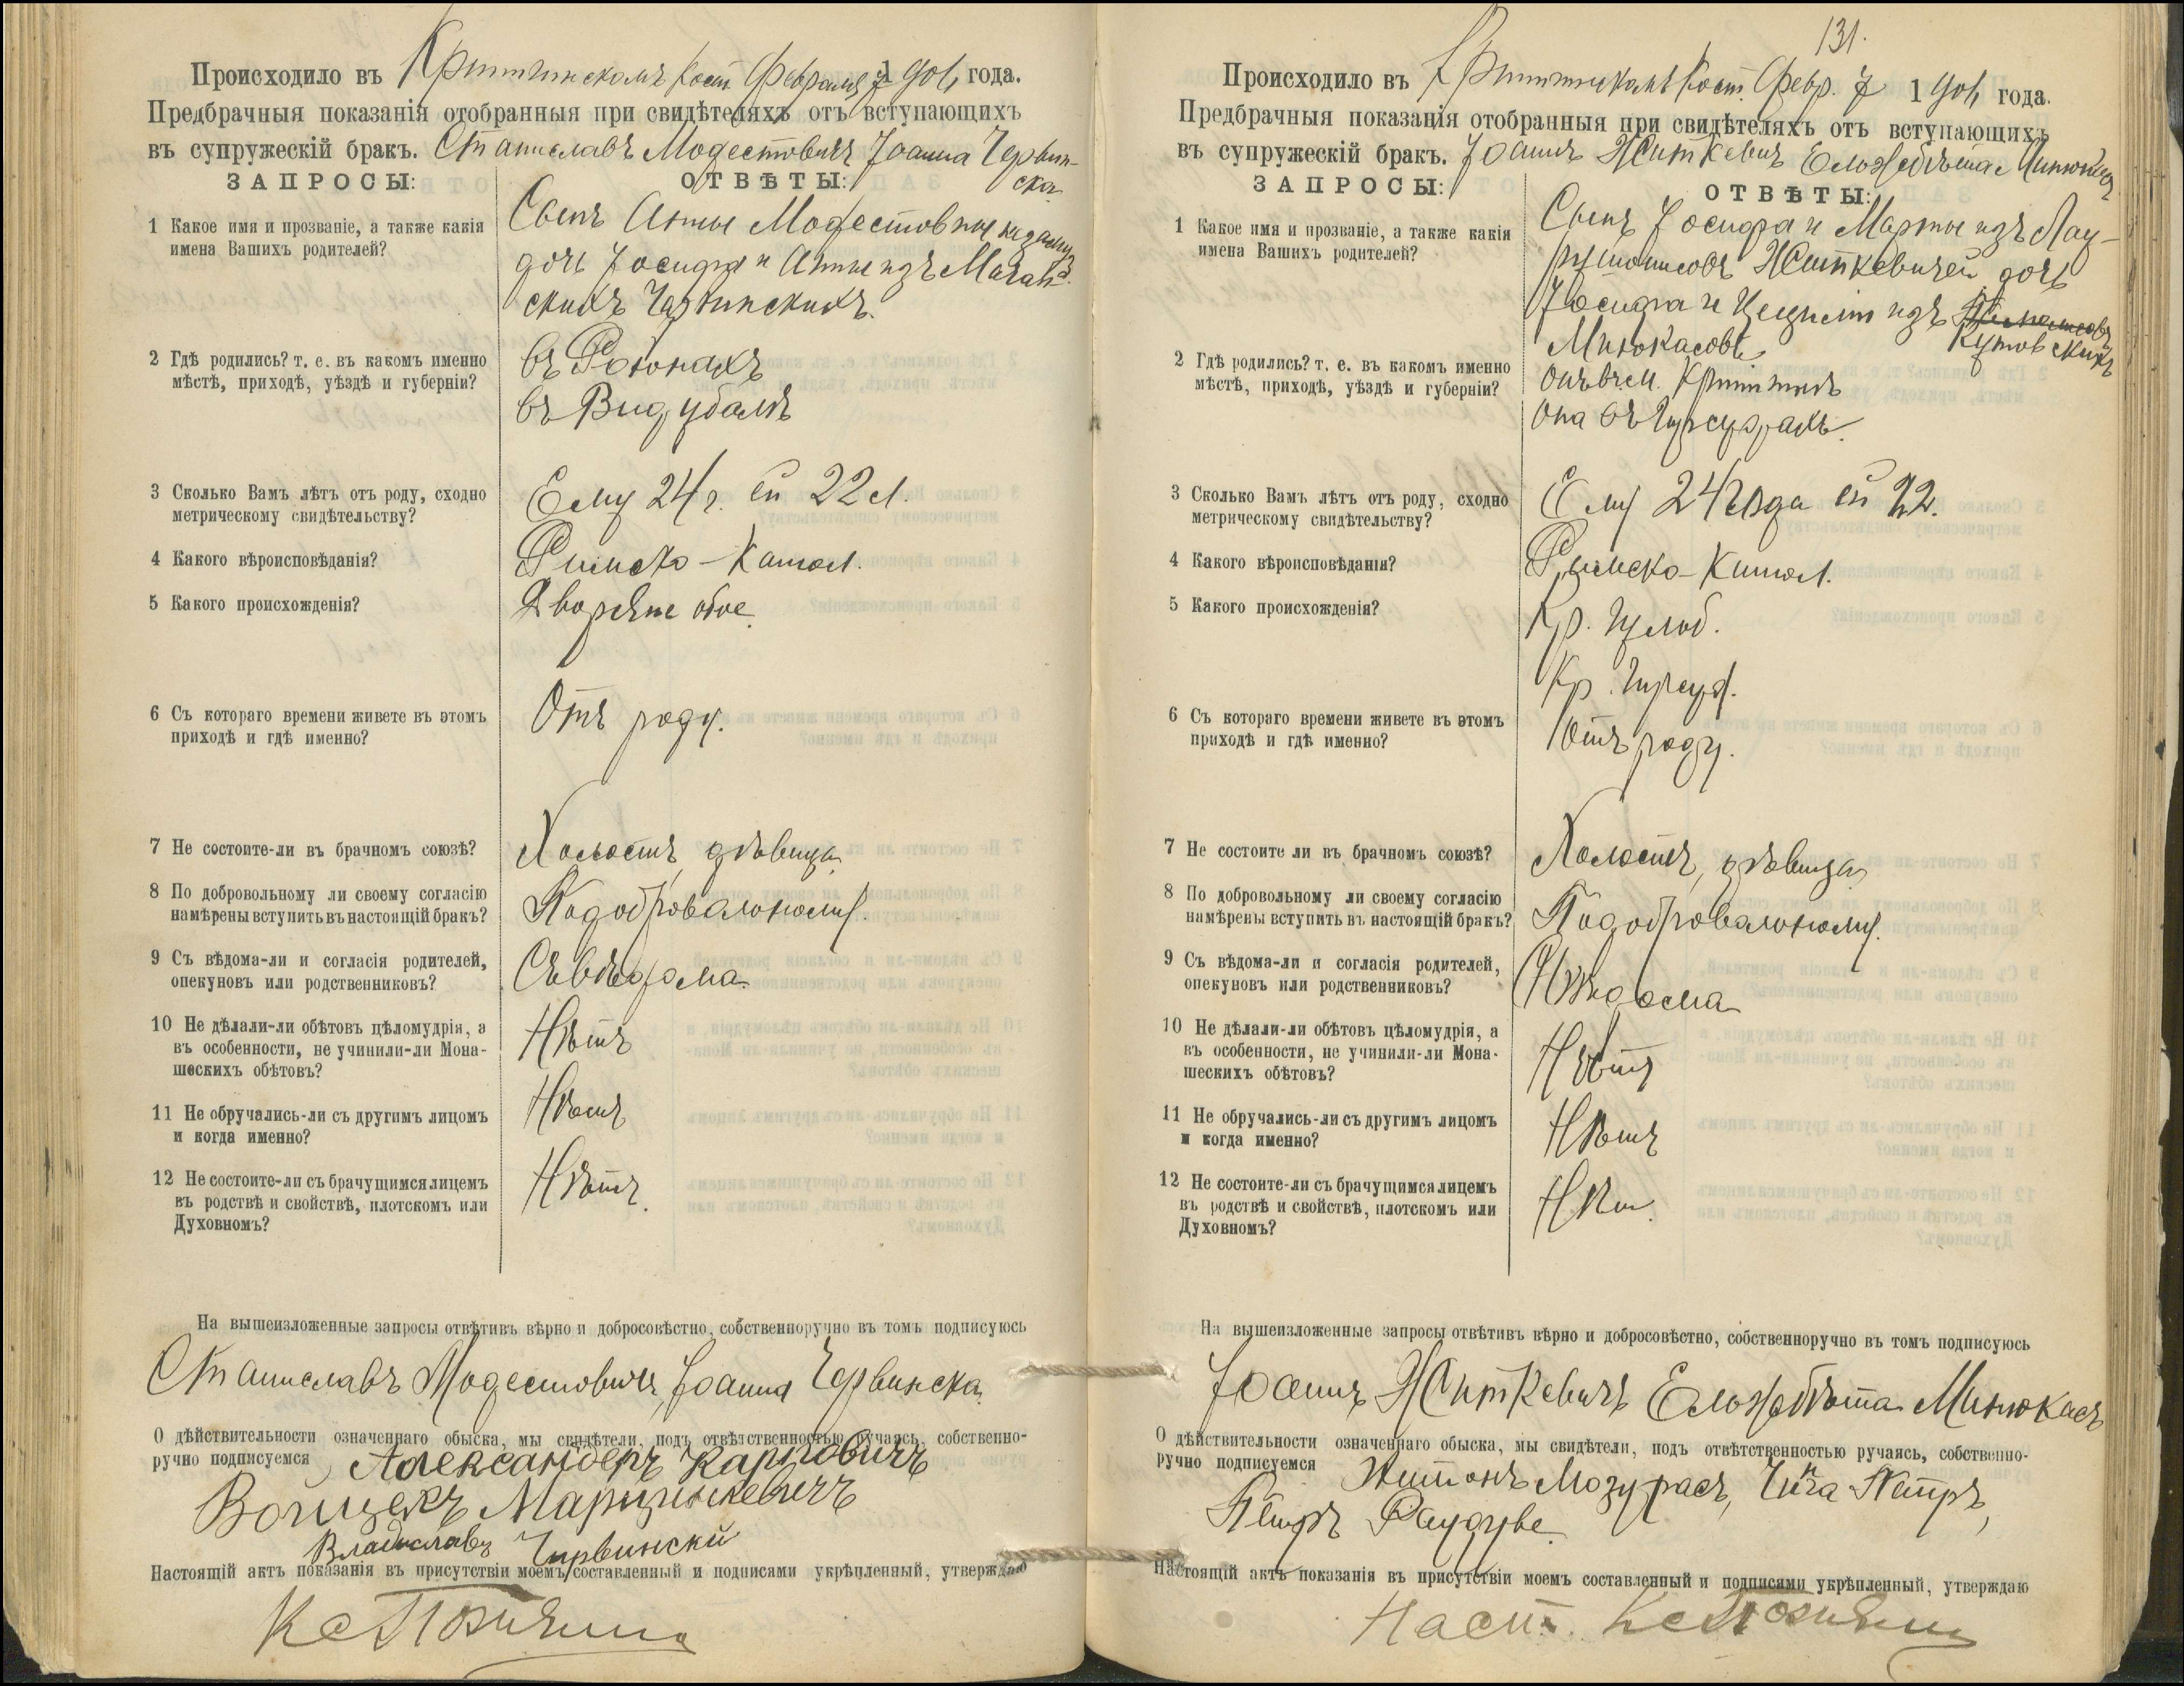 Происходило въ Криттинскомъ кост. Февраля 7 1901 года.
Предбрачныя показанія отобранныя при свидѣтеляхъ отъ вступающихъ
въ супружескій бракъ. Станиславъ Модестовичъ Іоанна Червин-
ска
ЗАПРОСЫ: ОТВѢТЫ:
1 Какое имя и прозваніе, а также какія
имена Вашихъ родителей?
Сынъ Анны Модестовичъ
дочь Іосифа и Анны изъ
скихъ Червинскихъ.
2 Гдѣ родились? т. е. въ какомъ именно
мѣстѣ, приходѣ, уѣздѣ и губерніи?
въ
въ
3 Сколько Вамъ лѣтъ отъ роду, сходно
метрическому свидѣтельству?
Ему 24 г. ей 22 л.
4 Какого вѣроисповѣданія?
Римско-Катол.
5 Какого происхожденія?
Дворяне обое.
6 Съ котораго времени живете въ этомъ
приходѣ и гдѣ именно?
Отъ роду.
7 Не состоите-ли въ брачномъ союзѣ?
Холостъ, дѣвица
8 По добровольному ли своему согласію
намѣрены вступить въ настоящій бракъ?
По добровольному.
9 Съ вѣдома-ли и согласія родителей,
опекуновъ или родственниковъ?
Съ вѣдома.
10 Не дѣлали-ли обѣтовъ цѣломудрія, а
въ особенности, не учинили-ли Мона-
шескихъ обѣтовъ?
Нѣтъ
11 Не обручались-ли съ другимъ лицомъ
и когда именно?
Нѣтъ
12 Не состоите-ли съ брачущимся лицемъ
въ родствѣ и свойствѣ, плотскомъ или
Духовномъ?
Нѣтъ.
На вышеизложенные запросы отвѣтивъ вѣрно и добросовѣстно, собственноручно въ томъ подписуюсь
Станиславъ Модестовичъ, Іоанна Червинска
О дѣйствительности означеннаго обыска, мы свидѣтели, подъ отвѣтственностью ручаясь, собственно-
ручно подписуемся Александеръ Карповичъ
Войцехъ Марцинкевичъ
Владиславъ Чирвински
Настоящій актъ показанія въ присутствіи моемъ составленный и подписями укрѣпленный, утверждаю
131.
Происходило въ кост. Февр. 7 1901 года.
Предбрачныя показанія отобранныя при свидѣтеляхъ отъ вступающихъ
въ супружескій бракъ. Іоаннъ Житкевичъ Ельжбѣта
ЗАПРОСЫ: ОТВѢТЫ:
1 Какое имя и прозваніе, а также какія
имена Вашихъ родителей?
Сынъ Іосифа и Марты изъ Лау-
Житкевичей дочь
Іосифа и Цециліи изъ
Минюкасовъ Кутовскихъ
2 Гдѣ родились? т. е. въ какомъ именно
мѣстѣ, приходѣ, уѣздѣ и губерніи?
онъ въ м.
она въ
3 Сколько Вамъ лѣтъ отъ роду, сходно
метрическому свидѣтельству?
Ему 24 года ей 22.
4 Какого вѣроисповѣданія?
Римско-Катол.
5 Какого происхожденія?
Кр.
Кр.
6 Съ котораго времени живете въ этомъ
приходѣ и гдѣ именно?
Отъ роду.
7 Не состоите ли въ брачномъ союзѣ?
Холостъ, дѣвица
8 По добровольному ли своему согласію
намѣрены вступить въ настоящій бракъ?
По добровольному.
9 Съ вѣдома-ли и согласія родителей,
опекуновъ или родственниковъ?
вѣдома
10 Не дѣлали-ли обѣтовъ цѣломудрія, а
въ особенности, не учинили-ли Мона-
шескихъ обѣтовъ?
Нѣтъ
11 Не обручались-ли съ другимъ лицомъ
и когда именно?
Нѣтъ
12 Не состоите-ли съ брачущимся лицемъ
въ родствѣ и свойствѣ, плотскомъ или
Духовномъ?
Нѣт.
На вышеизложенные запросы отвѣтивъ вѣрно и добросовѣстно, собственноручно въ томъ подписуюсь
Іоаннъ Житкевичъ Ельжбѣта Минюкасъ
О дѣйствительности означеннаго обыска, мы свидѣтели, подъ отвѣтственностью ручаясь, собственно-
ручно подписуемся Антонъ Мозурасъ, Петръ,
Петръ Раудуве
Настоящій актъ показанія въ присутствіи моемъ составленный и подписями укрѣпленный, утверждаю
Наст.